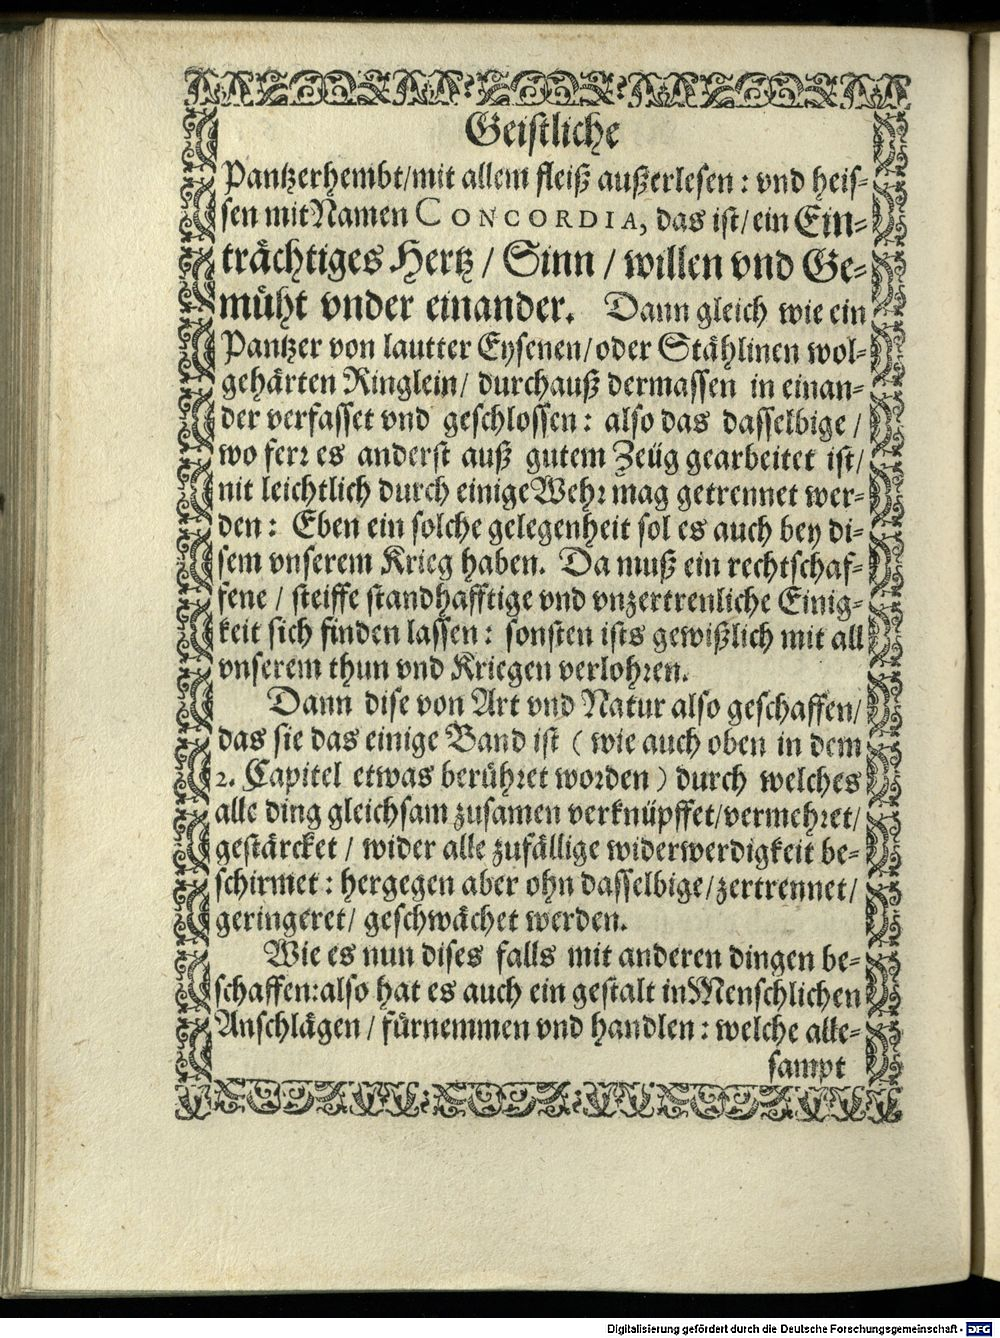 Geistliche
Pantzerhembt/mit allem fleiß außerlesen: vnd heis-
sen mit Namen CONCORDIA, das ist/ ein Ein-
trächtiges Hertz / Sinn / willen vnd Ge-
müht vnder einander. Dann gleich wie ein
Pantzer von lautter Eysenen/oder Stählinen wol-
gehärten Ringlein/ durchauß dermassen in einan-
der verfasset vnd geschlossen: also das dasselbige /
wo ferr es anderst auß gutem Zeüg gearbeitet ist/
nit leichtlich durch einige Wehr mag getrennet wer-
den: Eben ein solche gelegenheit sol es auch bey di-
sem vnserem Krieg haben. Da muß ein rechtschaf-
fene / steiffe standhafftige vnd vnzertrenliche Einig-
keit sich finden lassen: sonsten ists gewißlich mit all
vnserem thun vnd Kriegen verlohren.
Dann dise von Art vnd Natur also geschaffen/
das sie das einige Band ist ( wie auch oben in dem
2. Capitel etwas berühret worden ) durch welches
alle ding gleichsam zusamen verknüpffet/vermehret/
gestärcket / wider alle zufällige widerwerdigkeit be-
schirmet: hergegen aber ohn dasselbige/zertrennet/
geringeret/ geschwächet werden.
Wie es nun dises falls mit anderen dingen be-
schaffen:also hat es auch ein gestalt in Menschlichen
Anschlägen / fürnemmen vnd handlen: welche alle-
sampt
Digitalisierung gefördert durch die Deutsche Forschungsgemeinschaft - DFG